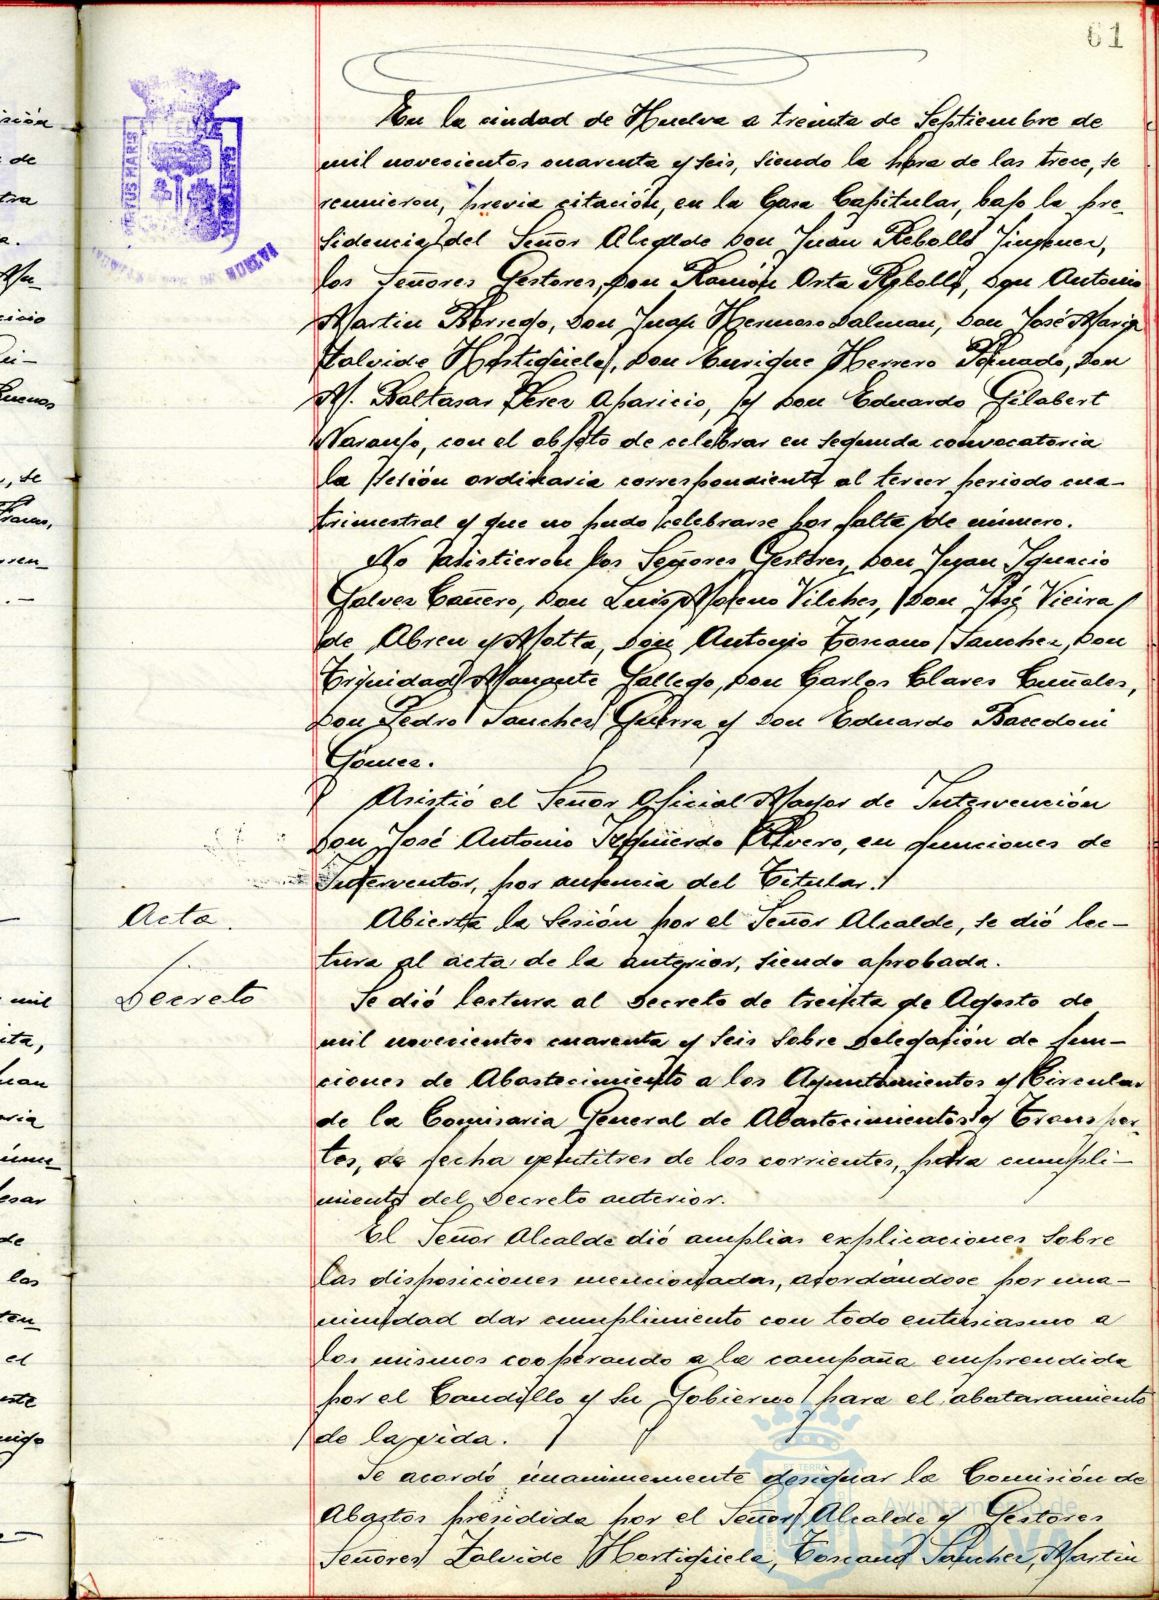 61
En la ciudad de Huelva a treinta de Septiembre de
mil novecientos cuarenta y seis, siendo la hora de las trece, se
reunieron, previa citación, en la Casa Capitular, bajo la pre-
sidencia del Señor Alcalde Don Juan Rebollo Jimenez,
los Señores Gestores, Don Ramón Orta Rebollo, Don Antonio
Martin Borrego, Don Juan Hermoso Dalman, Don José Maria
Zalvide Hortigüela, Don Enrique Herrero Peinado, Don
M. Baltasar Perez Aparicio, y Don Eduardo Gilabert
Naranjo, con el objeto de celebrar en segunda convocatoria
la sesión ordinaria correspondiente al tercer periodo cua-
trimestral y que no pudo celebrarse por falta de número.
No asistieron los Señores Gestores, Don Juan Ignacio
Galvez Cañero, Don Luis Moreno Vilches, Don José Vieira
de Abreu y Motta, Don Antonio Toscano Sanchez, Don
Trinidad Manante Gallego, Don Carlos Clares Cuñales,
Don Pedro Sanchez Guerra y Don Eduardo Bacedoni
Gómez.
Asistió el Señor Oficial Mayor de Intervención
Don José Antonio Izquierdo Rivero, en funciones de
Interventor, por ausencia del Titular.
Acta.
Abierta la Sesión por el Señor Alcalde, se dió lec-
tura al acta de la anterior, siendo aprobada.
Decreto
Se dió lectura al Decreto de treinta de Agosto de
mil novecientos cuarenta y seis sobre Delegación de fun-
ciones de Abastecimiento a los Ayuntamientos y Circular
de la Comisaria General de Abastecimientos y Transpor-
tes, de fecha veintitres de los corrientes, para cumpli-
miento del Decreto anterior.
El Señor Alcalde dió amplias explicaciones sobre
las disposiciones mencionadas, acordándose por una-
nimidad dar cumplimiento con todo entusiasmo a
los mismos cooperando a la campaña emprendida
por el Caudillo y su Gobierno para el abataramiento
de la vida.
Se acordó únanimemente designar la Comisión de
Abastos presidida por el Señor Alcalde y Gestores
Señores Zalvide Hortigüela, Toscano Sanchez, Martin
Ayuntamiento de
HUELVA